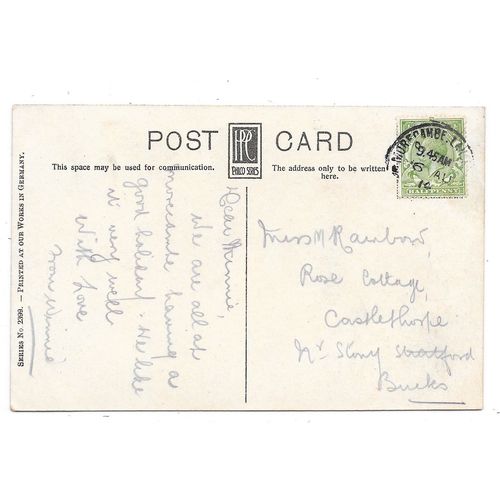 POST CARD
PHILCO SERIES
This space may be used for communication.
The address only to be written here.
MORECAMBE
9.45AM
6 AU
14
HALFPENNY
Dear Minnie,
We are all at
morecambe having a
good holiday. We like
it very well
With Love
from Winnie
Miss M Rainbow,
Rose Cottage,
Castlethorpe
Nr Stony Stratford
Bucks
SERIES NO. 2399. — PRINTED AT OUR WORKS IN GERMANY.